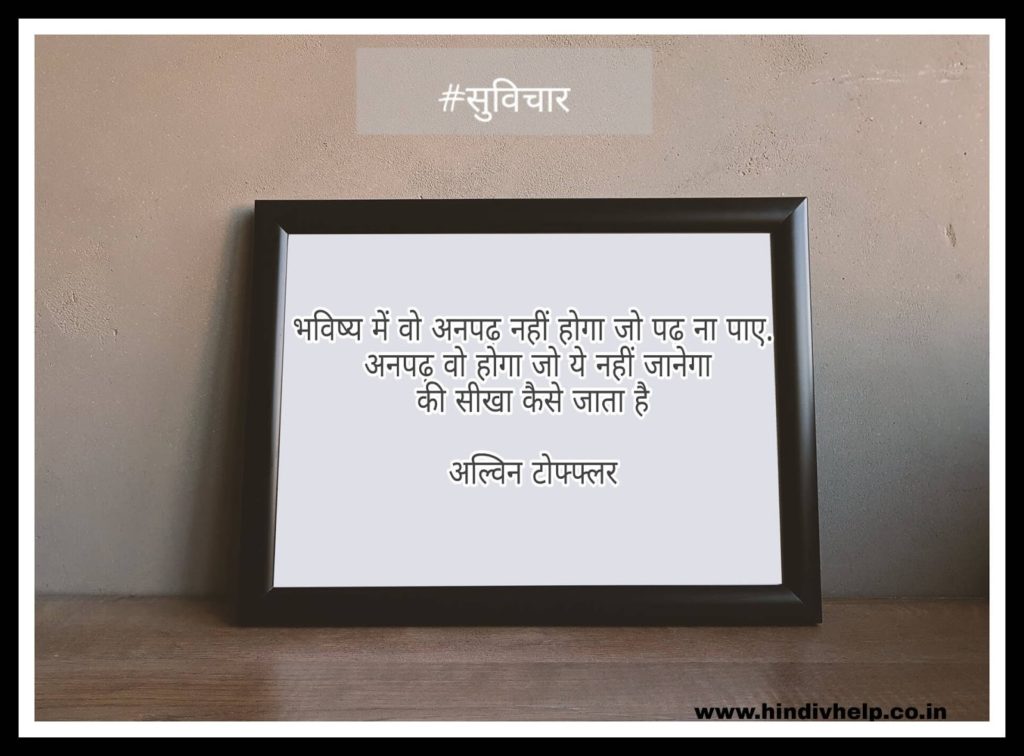 #सुविचार
भविष्य में वो अनपढ़ नहीं होगा जो पढ ना पाए.
अनपढ़ वो होगा जो ये नहीं जानेगा
की सीखा कैसे जाता है
अल्विन टोफ्फ्लर
www.hindivhelp.co.in